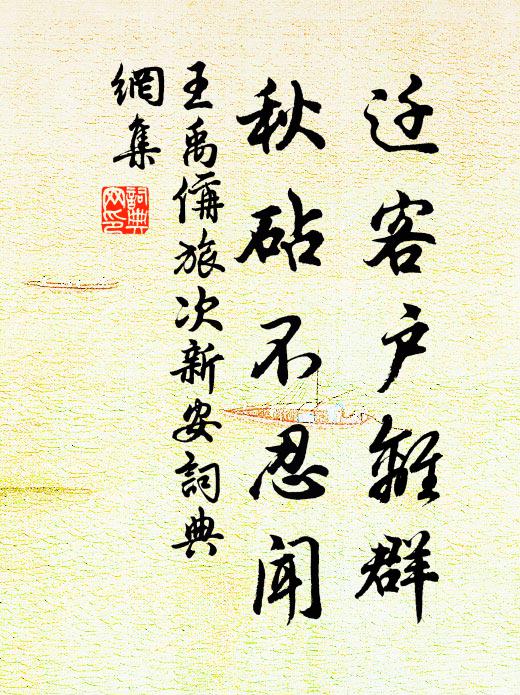 迁客户離群
秋砧不忍闻
王禹偁旅次新安詞典
網集
詞典
网印